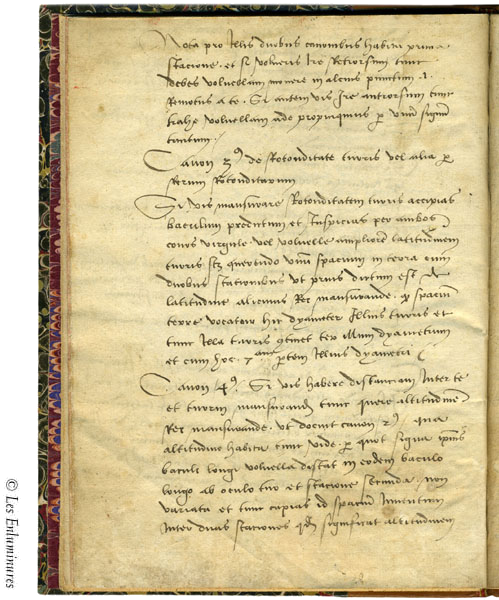 Nota pro Illis duobus canonibus habita prima
stacione et si volueris Ire retrorsum tunc
debes volvellam movere in alcius punctum .1.
Remotius a te. Si autem vis Ire antrorsum tunc
trahe volvellam ad te propinquius per unum signum
tantum.
Canon 3us de Rotonditate turris vel alia
rerum Rotonditatum
Si vis mansurare Rotonditatem turris accipias
baculum predictum et Inspicias per ambos
conos virgule vel volvelle ampliorem latitudinem
turris scilicet querendo unum spacium in terra cum
duobus stacionibus ut prius dictum est de
latitudine alicuius Rei mansurande. quod spacium
terre vocatur hic dyameter Illius turris et
tunc Illa turris continet ter illum dyametrum
et cum hoc 7am partem Illius dyametri
Canon 4us. Si vis habere distanciam Inter te
et turrim mansurandam tunc quere altitudinem
Rei mansurande. ut docuit canon 2us qua
altitudine habita tunc vide per quot signa ipsius
baculi longi volvella distat in eodem baculo
longo ab oculo tuo et stacione secunda. non
variata et tunc capias id spacium Inventum
Inter duas staciones quod significat altitudinem
© Les Enluminures